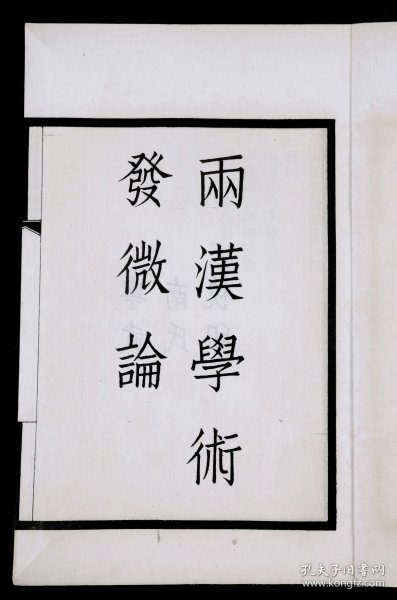 兩漢學術
發微論
孔夫子旧书网
www.kongfz.com